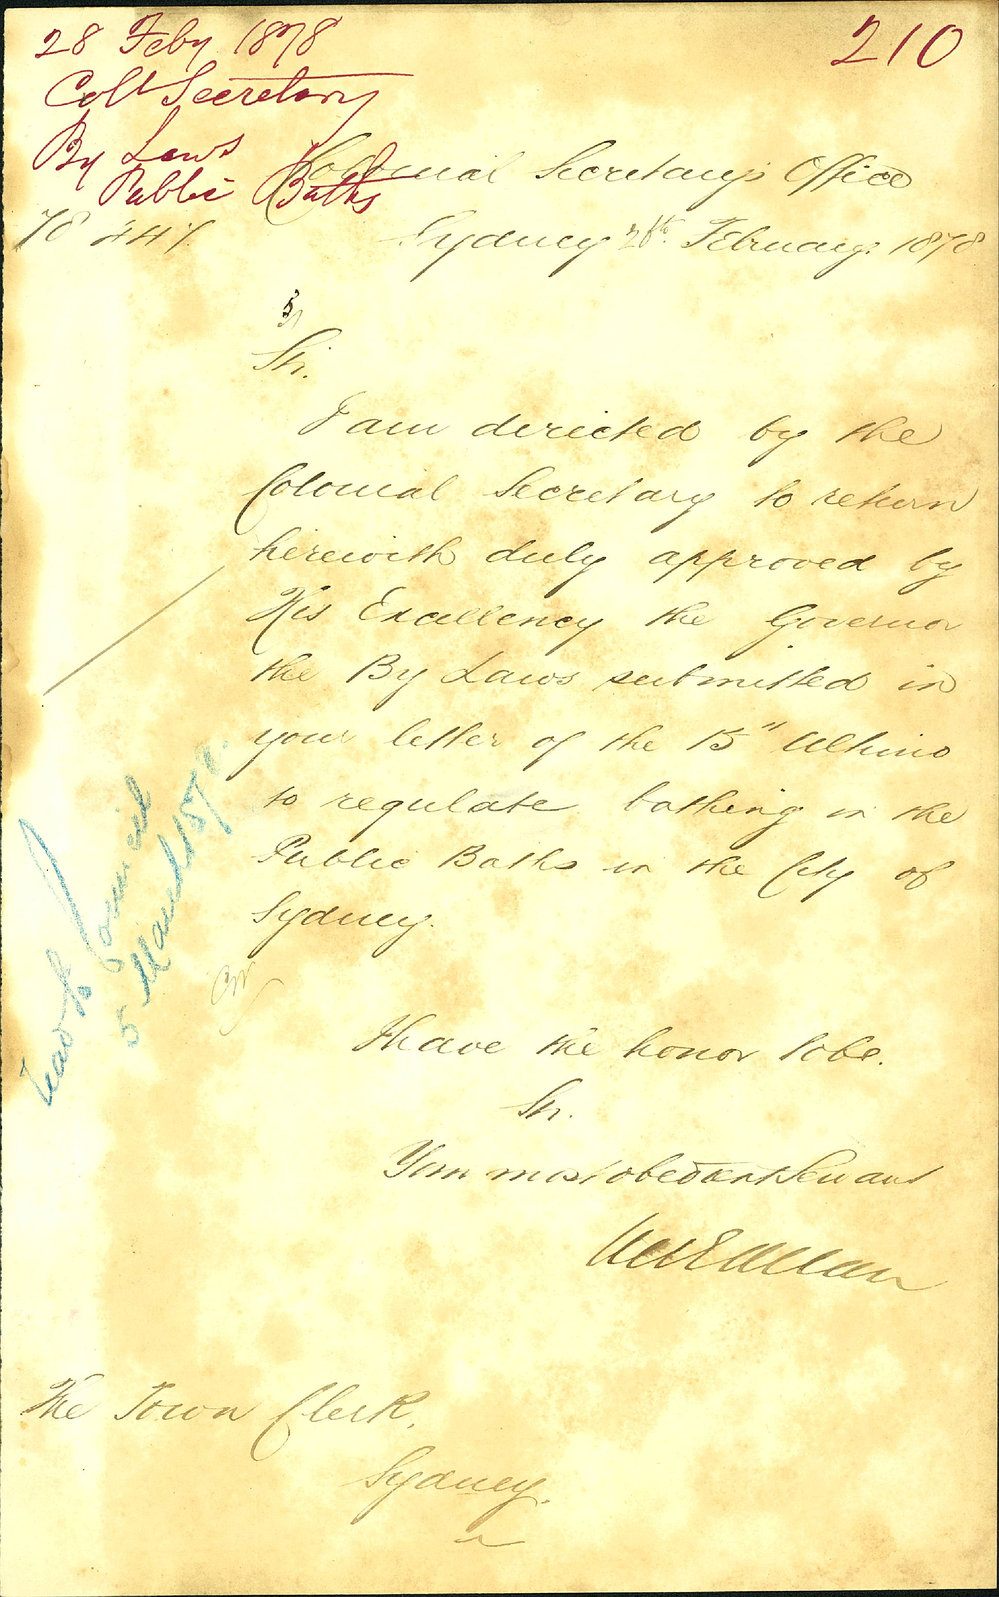 28 Feby 1878
210
Coll Secretary
By Laws
Public Baths
Colonial Secretary's Office
Sydney 28th February 1878
Sir.
I am directed by the
Colonial Secretary to return
herewith duly approved by
His Excellency the Governor
the By Laws submitted in
your letter of the 15" Ultimo
to regulate bathing in the
Public Baths in the City of
Sydney.
I have the honor to be.
Sir.
Your most obedient Servant
The Town Clerk.
Sydney.
Council
5 March 1878.